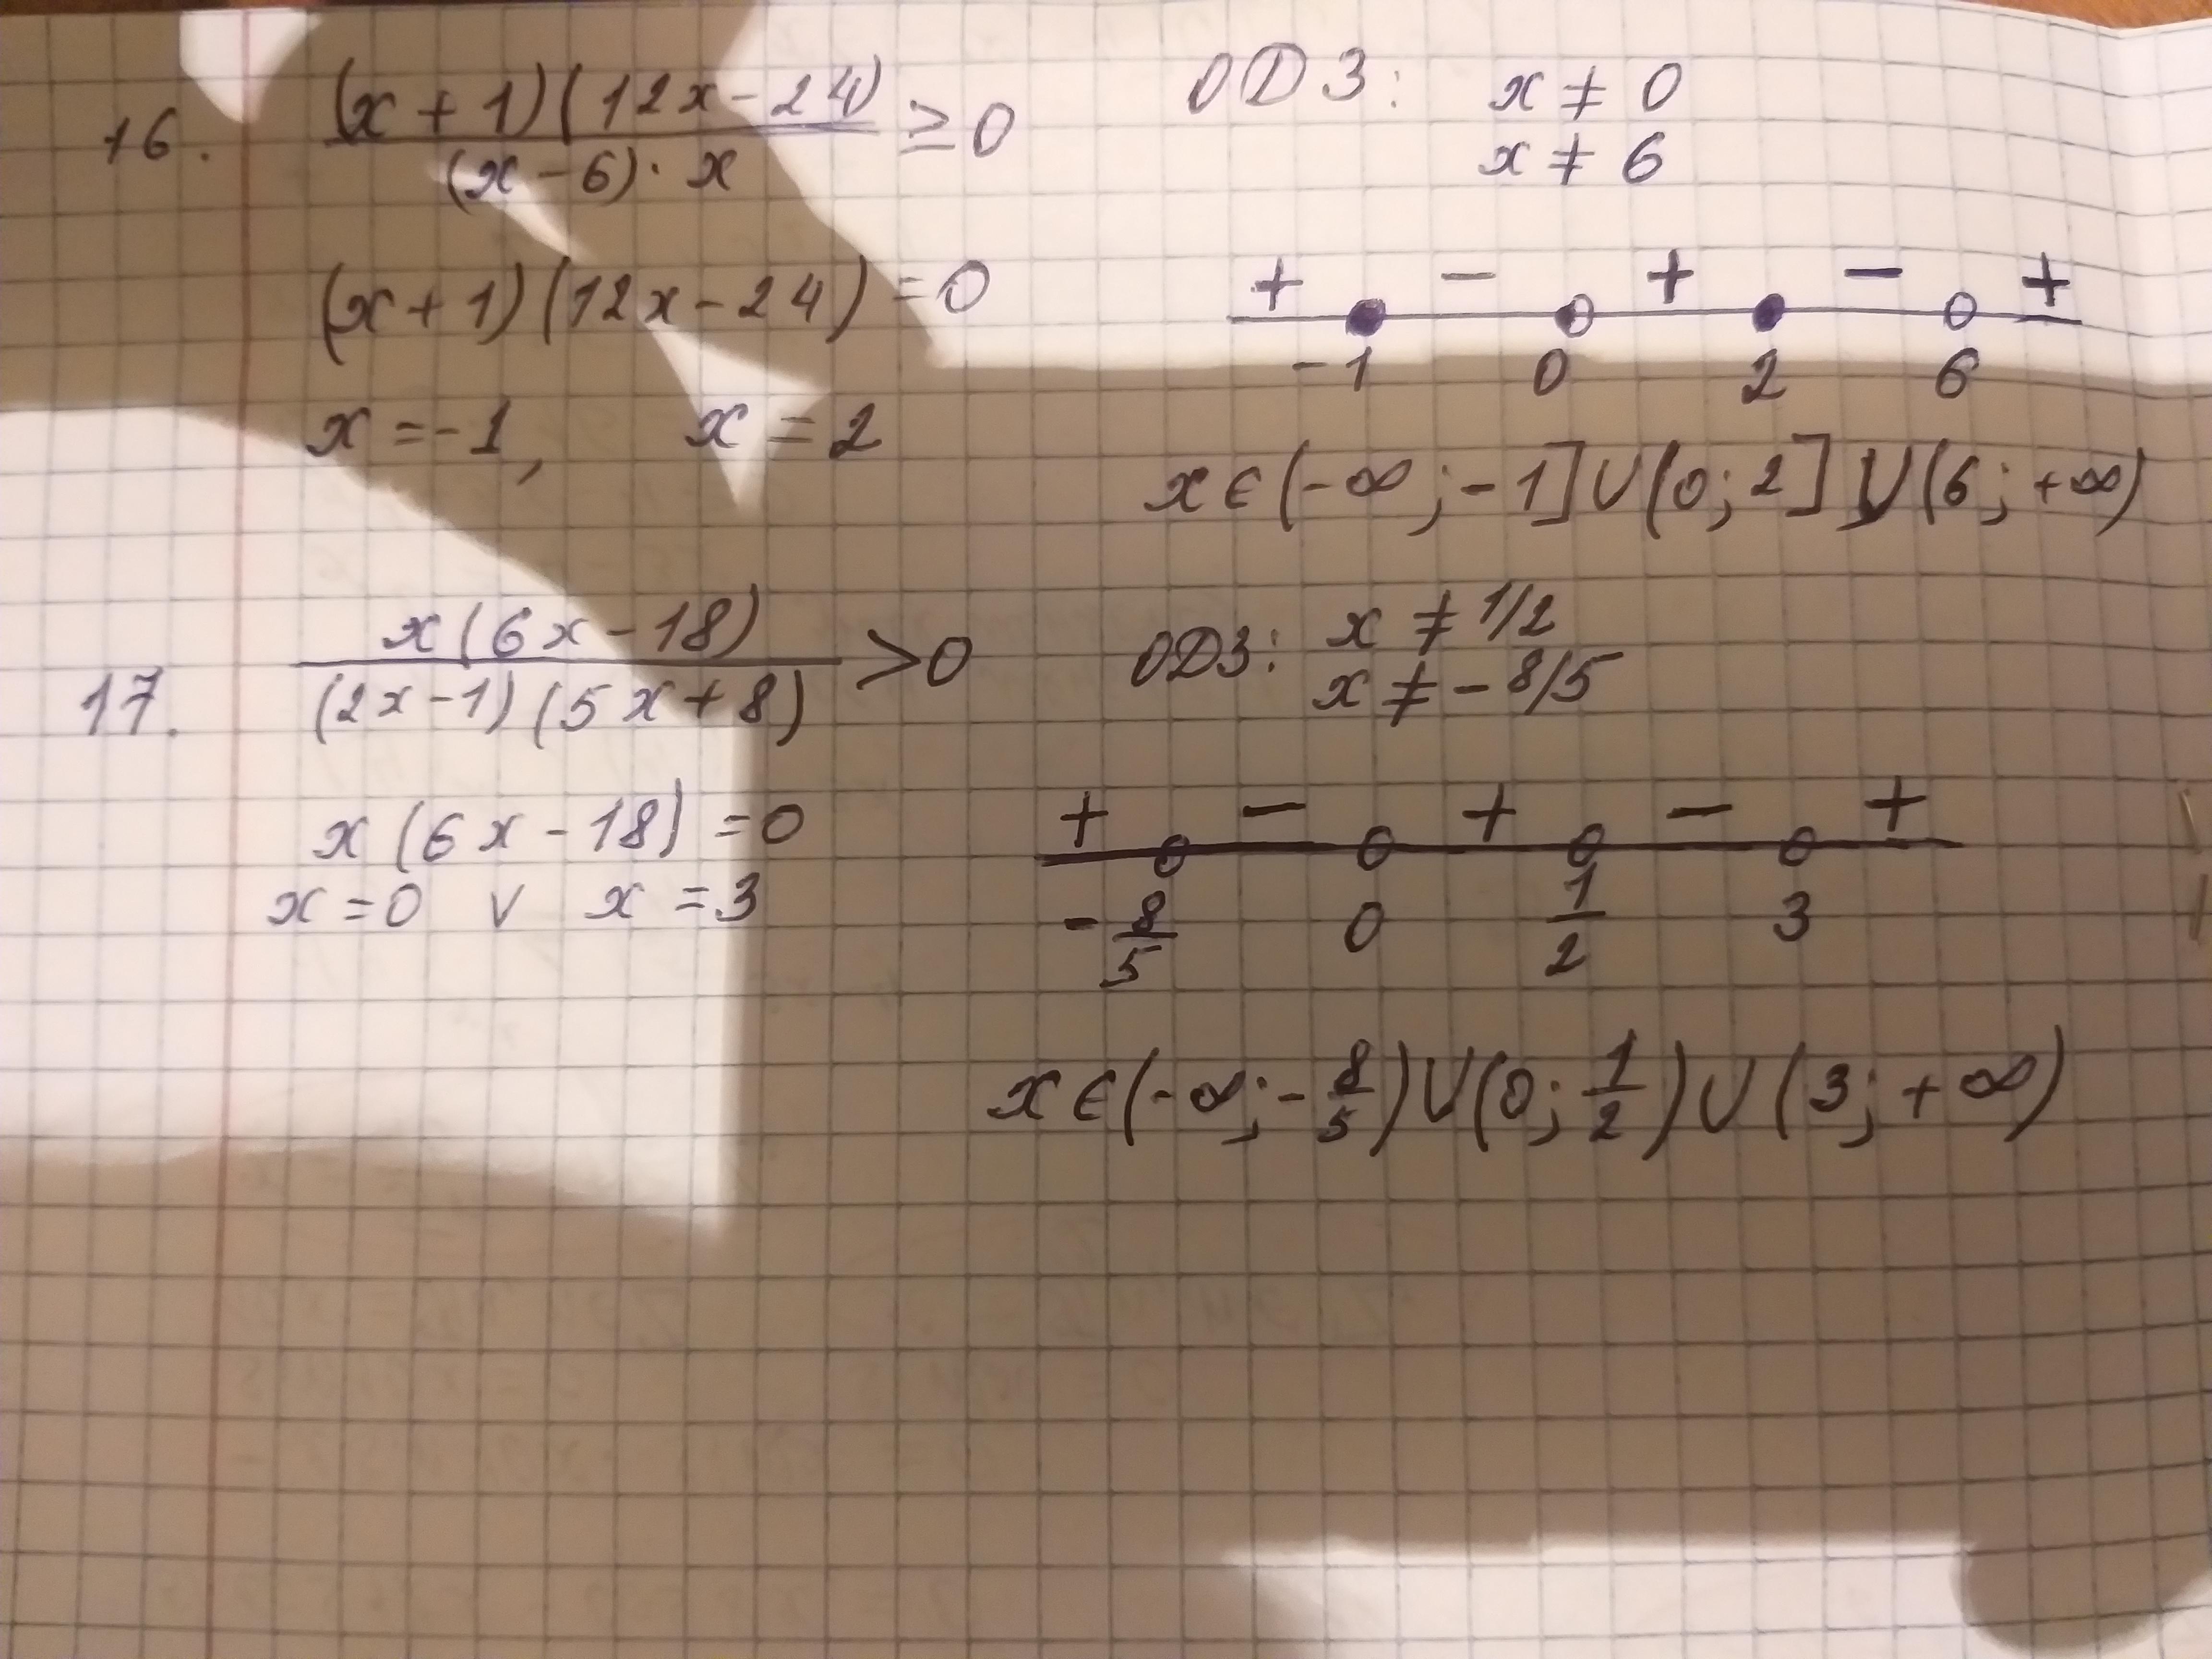 16. (x + 1)(12x - 24) / (x - 6) · x ≥ 0
ОДЗ: x ≠ 0
x ≠ 6
(x + 1)(12x - 24) = 0
x = -1, x = 2
+ - + - +
-1 0 2 6
x ∈ (-∞; -1] ∪ (0; 2] ∪ (6; +∞)
17. x(6x - 18) / (2x - 1)(5x + 8) > 0
ОДЗ: x ≠ 1/2
x ≠ - 8/5
x(6x - 18) = 0
x = 0 ∨ x = 3
+ - + - +
-8/5 0 1/2 3
x ∈ (-∞; -8/5) ∪ (0; 1/2) ∪ (3; +∞)